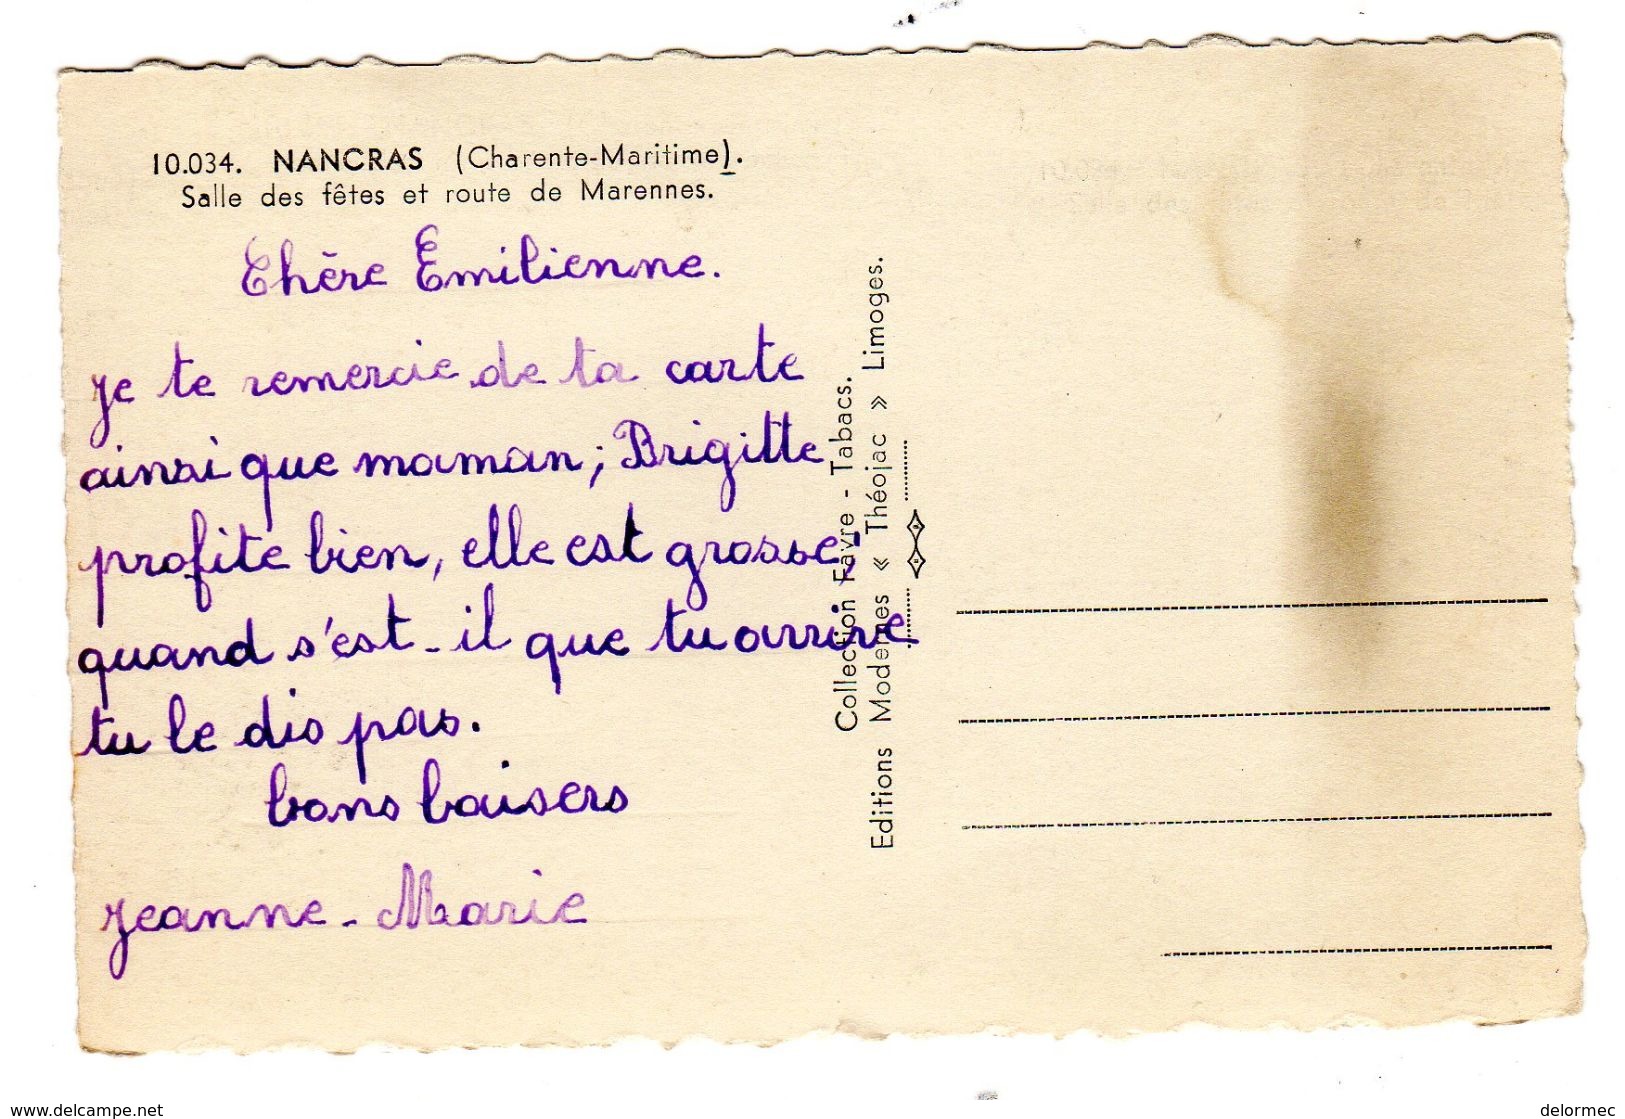 10.034. NANCRAS (Charente-Maritime).
Salle des fêtes et route de Marennes.
Chère Emilienne.
Je te remercie de ta carte
ainsi que maman; Brigitte
profite bien, elle est grosse;
quand s'est-il que tu arrive
tu le dis pas.
bons baisers
Jeanne-Marie
Collection Favre - Tabacs.
Editions Modernes « Théojac » Limoges.
www.delcampe.net
delormec